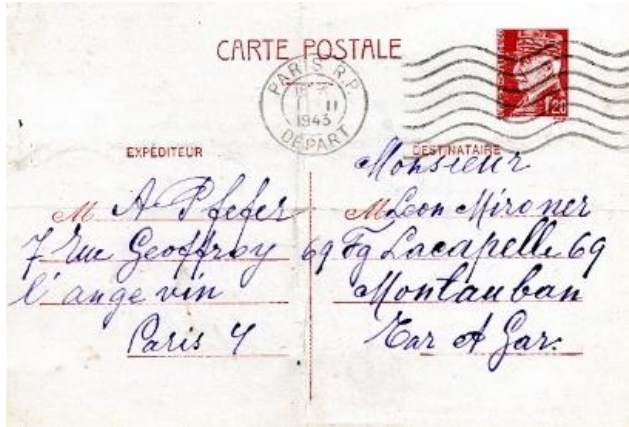 CARTE POSTALE
PARIS R.P.
11
1943
DÉPART
1F20
EXPÉDITEUR
M A Pfefer
7 rue Geoffroy
l'ange vin
Paris 4
DESTINATAIRE
Monsieur
M Léon Mironer
69 Fg Lacapelle 69
Montauban
Tar et Gar.